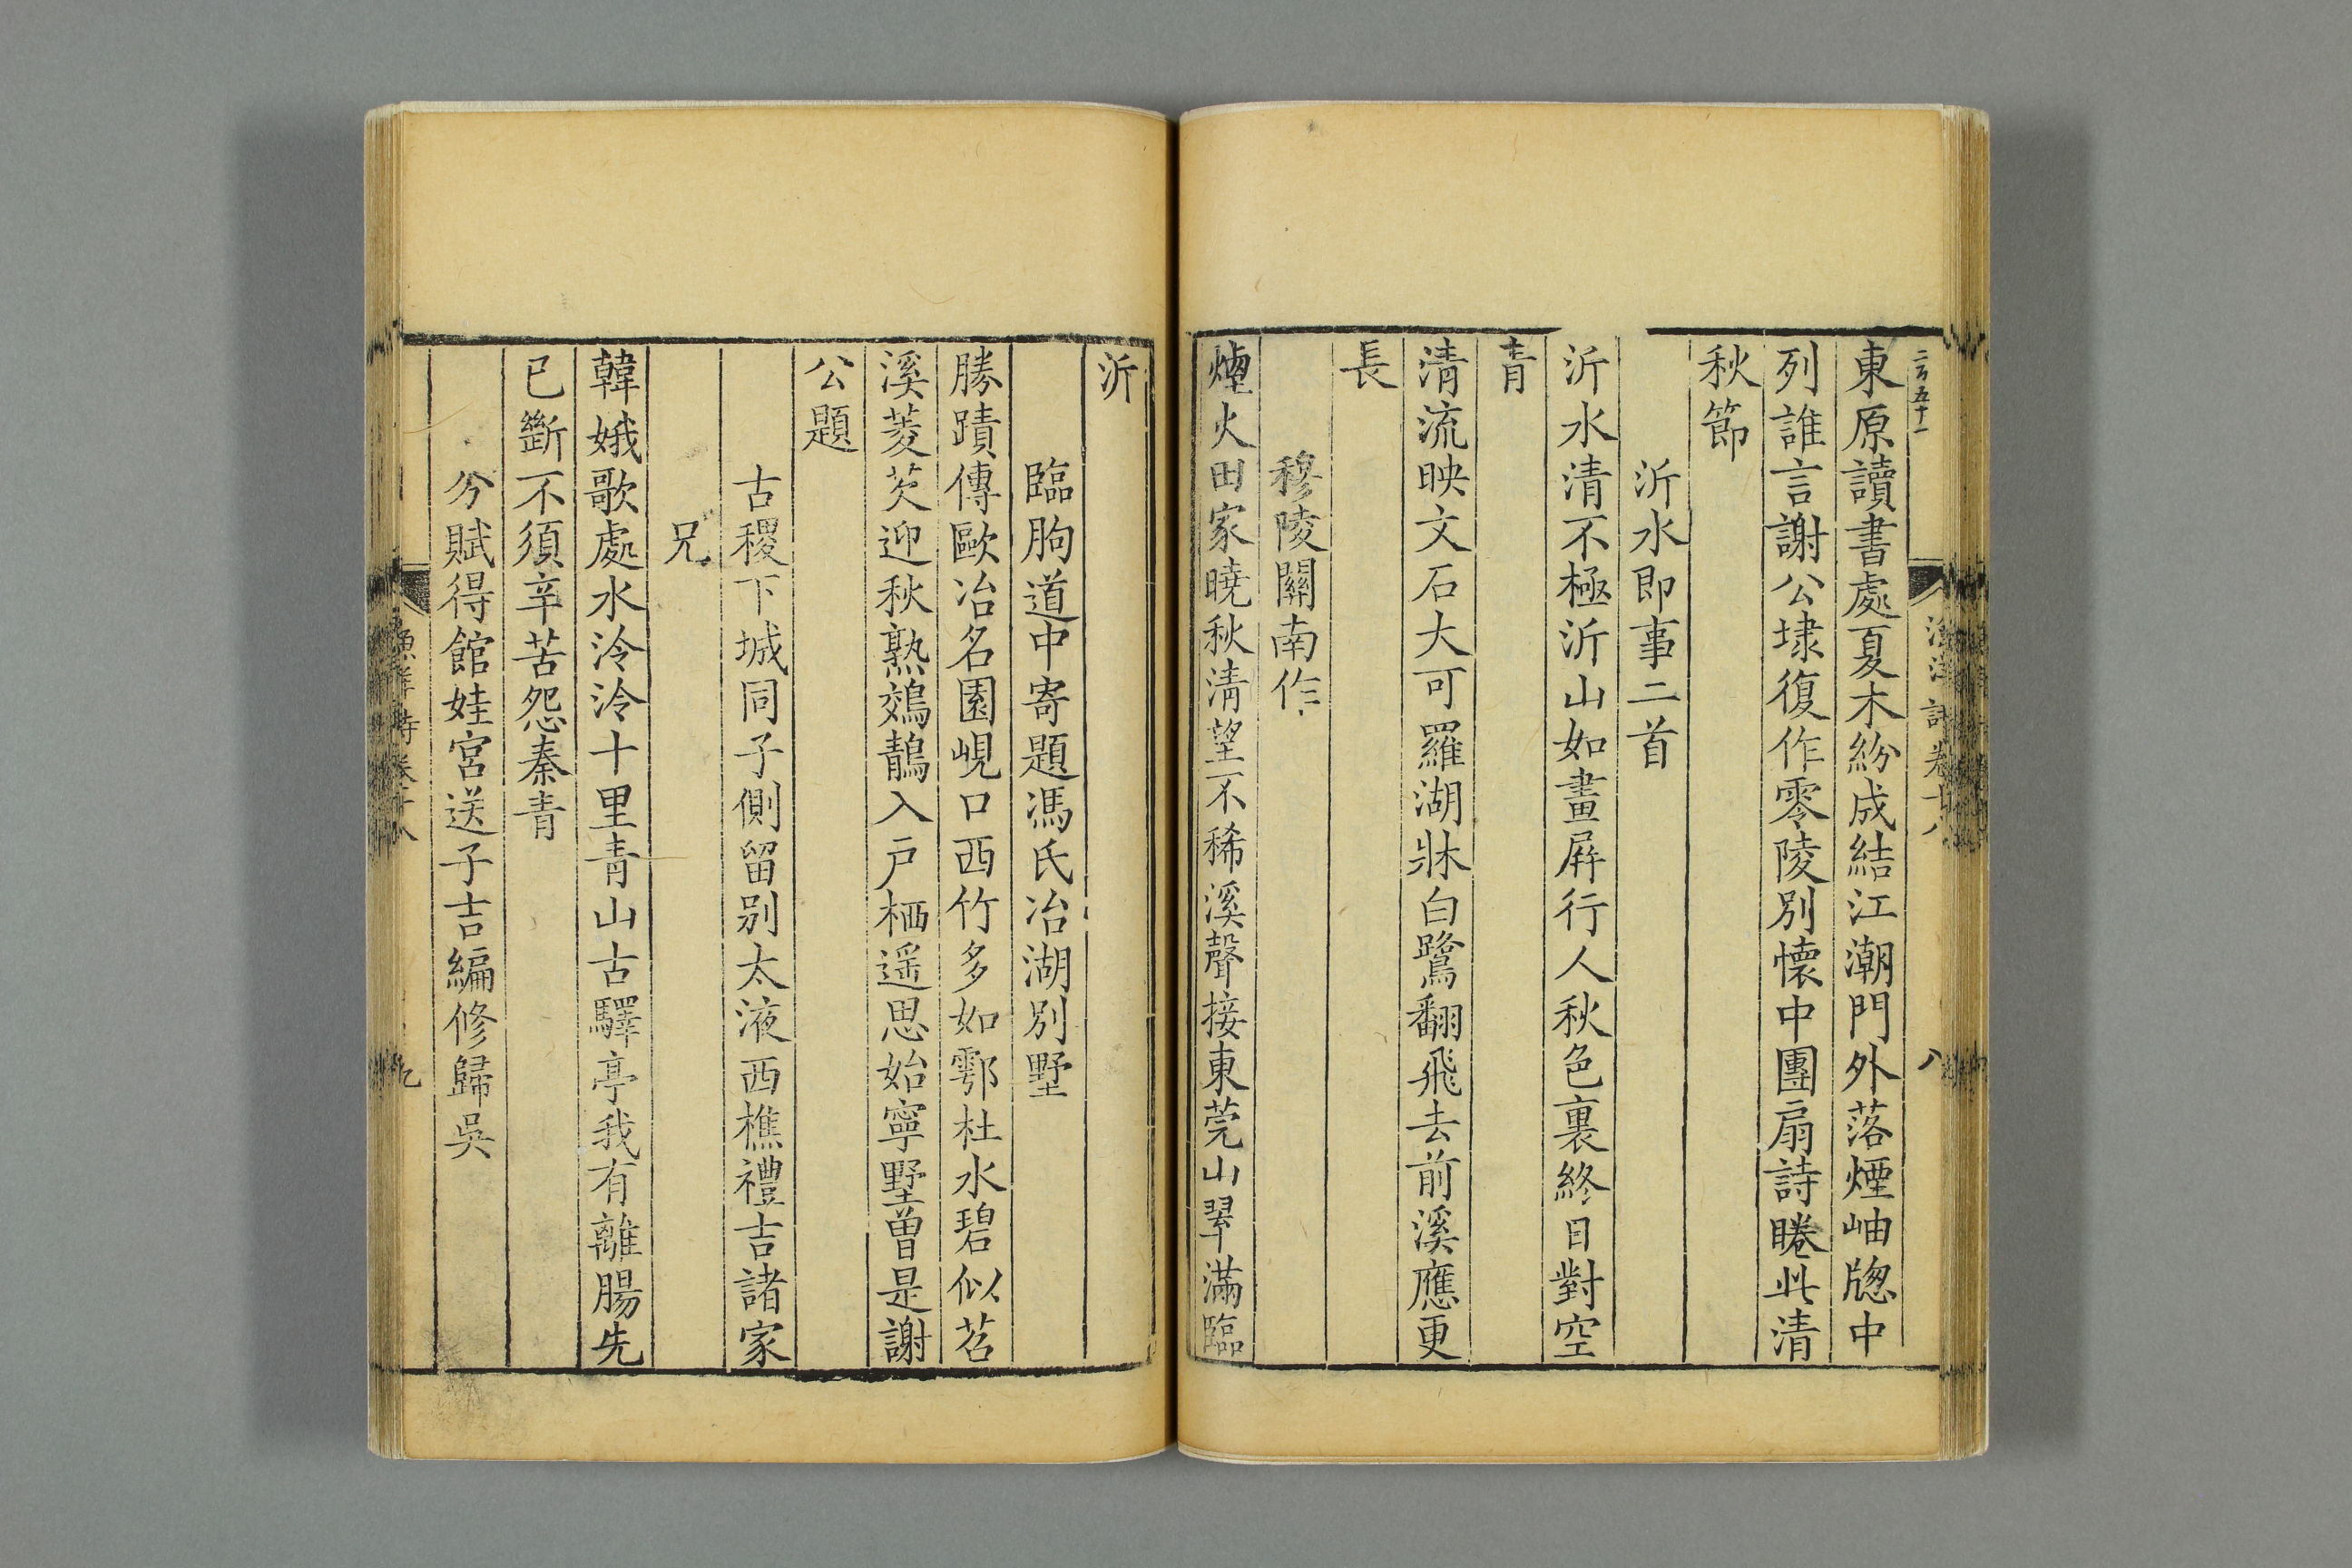 東原讀書處夏木紛成結江潮門外落煙岫牕中
列誰言謝公埭復作零陵別懷中團扇詩睠此清
秋節
沂水即事二首
沂水清不極沂山如畫屏行人秋色裏終日對空
青
清流映文石大可羅湖牀白鷺翻飛去前溪應更
長
穆陵關南作
煙火田家曉秋淸望不稀溪聲接東莞山翠滿臨
沂
臨朐道中寄題馮氏冶湖別墅
勝蹟傳歐冶名園峴口西竹多如鄠杜水碧似苕
溪菱芡迎秋熟鵁鶄入戸栖遥思始寧墅曽是謝
公題
古稷下城同子側留別太液西樵禮吉諸家
兄
韓娥歌處水泠泠十里靑山古驛亭我有離腸先
已斷不須辛苦怨秦青
分賦得館娃宮送子吉編修歸吳
漁洋詩卷十八
八
漁洋詩卷十八
九